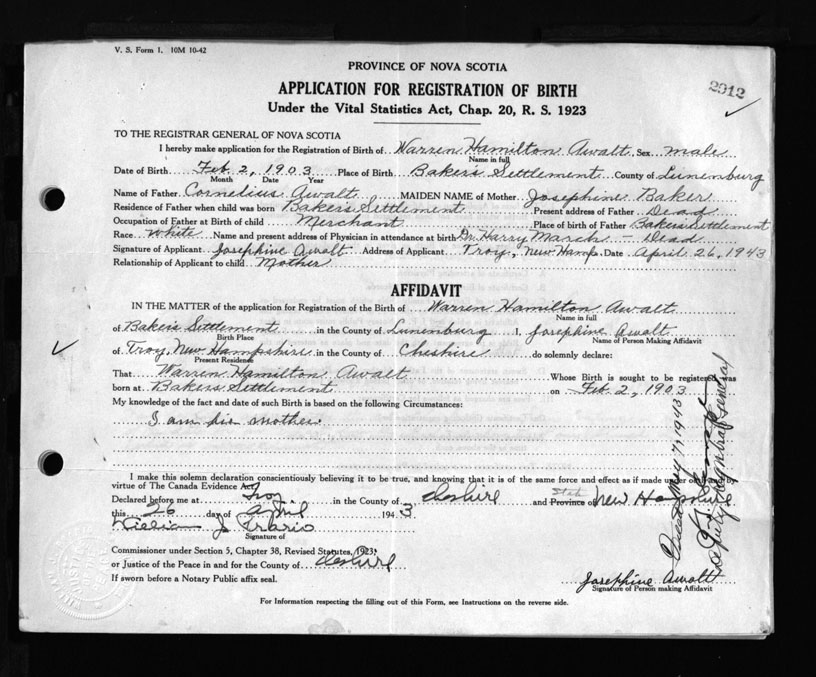 V. S. Form 1. 10M 10-42
PROVINCE OF NOVA SCOTIA
2912
APPLICATION FOR REGISTRATION OF BIRTH
Under the Vital Statistics Act, Chap. 20, R. S. 1923
TO THE REGISTRAR GENERAL OF NOVA SCOTIA
I hereby make application for the Registration of Birth of Warren Hamilton Awalt Sex male
Name in full
Date of Birth Feb. 2, 1903 Place of Birth Bakers Settlement County of Lunenburg
Month Date Year
Name of Father Cornelius Awalt MAIDEN NAME of Mother Josephine Baker
Residence of Father when child was born Bakers Settlement Present address of Father Dead
Occupation of Father at Birth of child Merchant Place of birth of Father Bakers Settlement
Race White Name and present address of Physician in attendance at birth Dr. Harry March - Dead
Signature of Applicant Josephine Awalt Address of Applicant Troy, New Hamp. Date April 26, 1943
Relationship of Applicant to child Mother
AFFIDAVIT
IN THE MATTER of the application for Registration of the Birth of Warren Hamilton Awalt
Name in full
of Bakers Settlement in the County of Lunenburg I, Josephine Awalt
Birth Place Name of Person Making Affidavit
of Troy, New Hampshire in the County of Cheshire do solemnly declare:
Present Residence
That Warren Hamilton Awalt Whose Birth is sought to be registered was
born at Bakers Settlement on Feb. 2, 1903
My knowledge of the fact and date of such Birth is based on the following Circumstances:
I am his mother.
I make this solemn declaration conscientiously believing it to be true, and knowing that it is of the same force and effect as if made under oath by
virtue of The Canada Evidence Act.
Declared before me at Troy in the County of Cheshire and Province of State New Hampshire
this 26 day of April 1943
William J
Signature of
Commissioner under Section 5, Chapter 38, Revised Statutes, 1923,
or Justice of the Peace in and for the County of Cheshire
If sworn before a Notary Public affix seal.
Josephine Awalt
Signature of Person making Affidavit
For Information respecting the filling out of this Form, see Instructions on the reverse side.
May 7, 1943
Deputy Registrar General